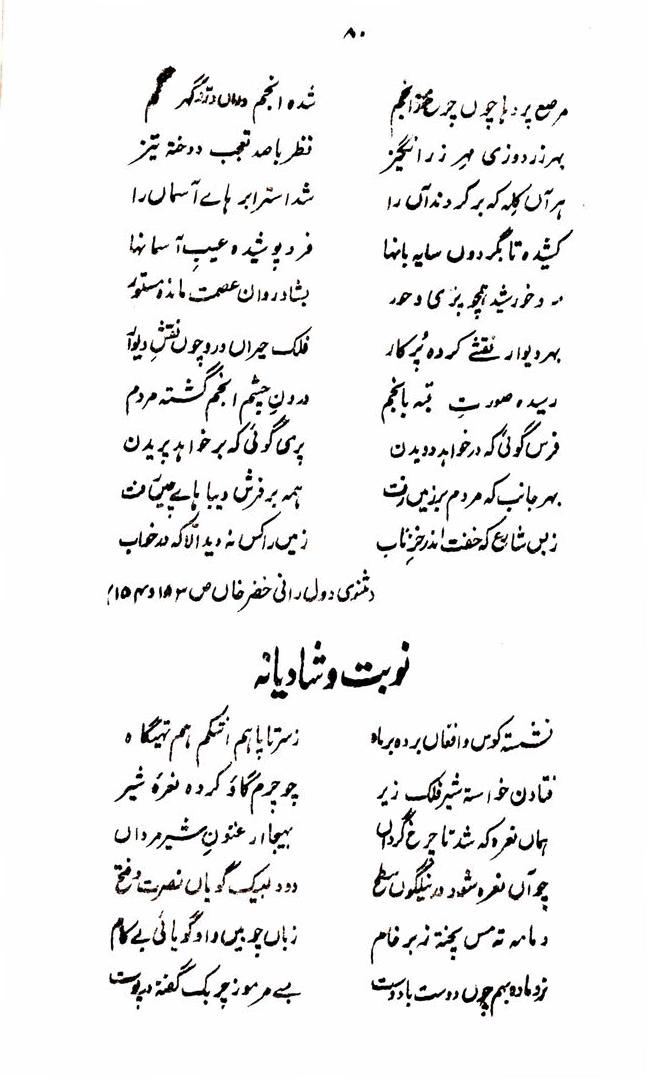 ۸۰
مرصع پردہا چوں چرخ و انجم شدہ انجم دراں گہر گم
بہر زردوزی مہر زر انگیز نظر با صد تعجب دوختہ تیز
ہر آں کلہ کہ بر کردند آں را شد استر ابر ہاے آسماں را
کشیدہ تا بگردوں سایہ بانہا فرو پوشیدہ عیب آسمانہا
مہ و خورشید ہمچو پری و حور بشادروان عصمت ماندہ مستور
بہر دیوار نقشے کردہ پرکار فلک حیراں درو چوں نقش دیوار
رسیدہ صورت قبہ بانجم درون چشم انجم گشتہ مردم
فرس گوئی کہ در خواہد دویدن پری گوئی کہ بر خواہد پریدن
بہر جانب کہ مردم بر زمیں رفت ہمہ بر فرش دیبا ہاے چیں رفت
زبس شارع کہ خفت اندر خز ناب زمیں را کس نہ دید الا کہ در خواب
(مثنوی دول رانی خضر خاں ص ۱۵۳ و ۱۵۴)
نوبت و شادیانہ
نشستہ کوس و افغاں بردہ بر ماہ ز سر تا پا ہم اشکم ہم تہیگاہ
فتادن خواستہ شیر فلک زیر چو چرم گاؤ کردہ نعرۂ شیر
ہماں نعرہ کہ شد تا چرخ گرداں بہیجا ارغنون شیر مرداں
چو آں نعرہ شود در نیلگوں سطح دود لبیک گویاں نصرت و فتح
دمامہ تہ مس پختہ زبر خام زباں چوبیں و او گویائی بے کام
نر و مادہ بہم چوں دوست با دوست بسے مرموز چربک گفتہ در پوست